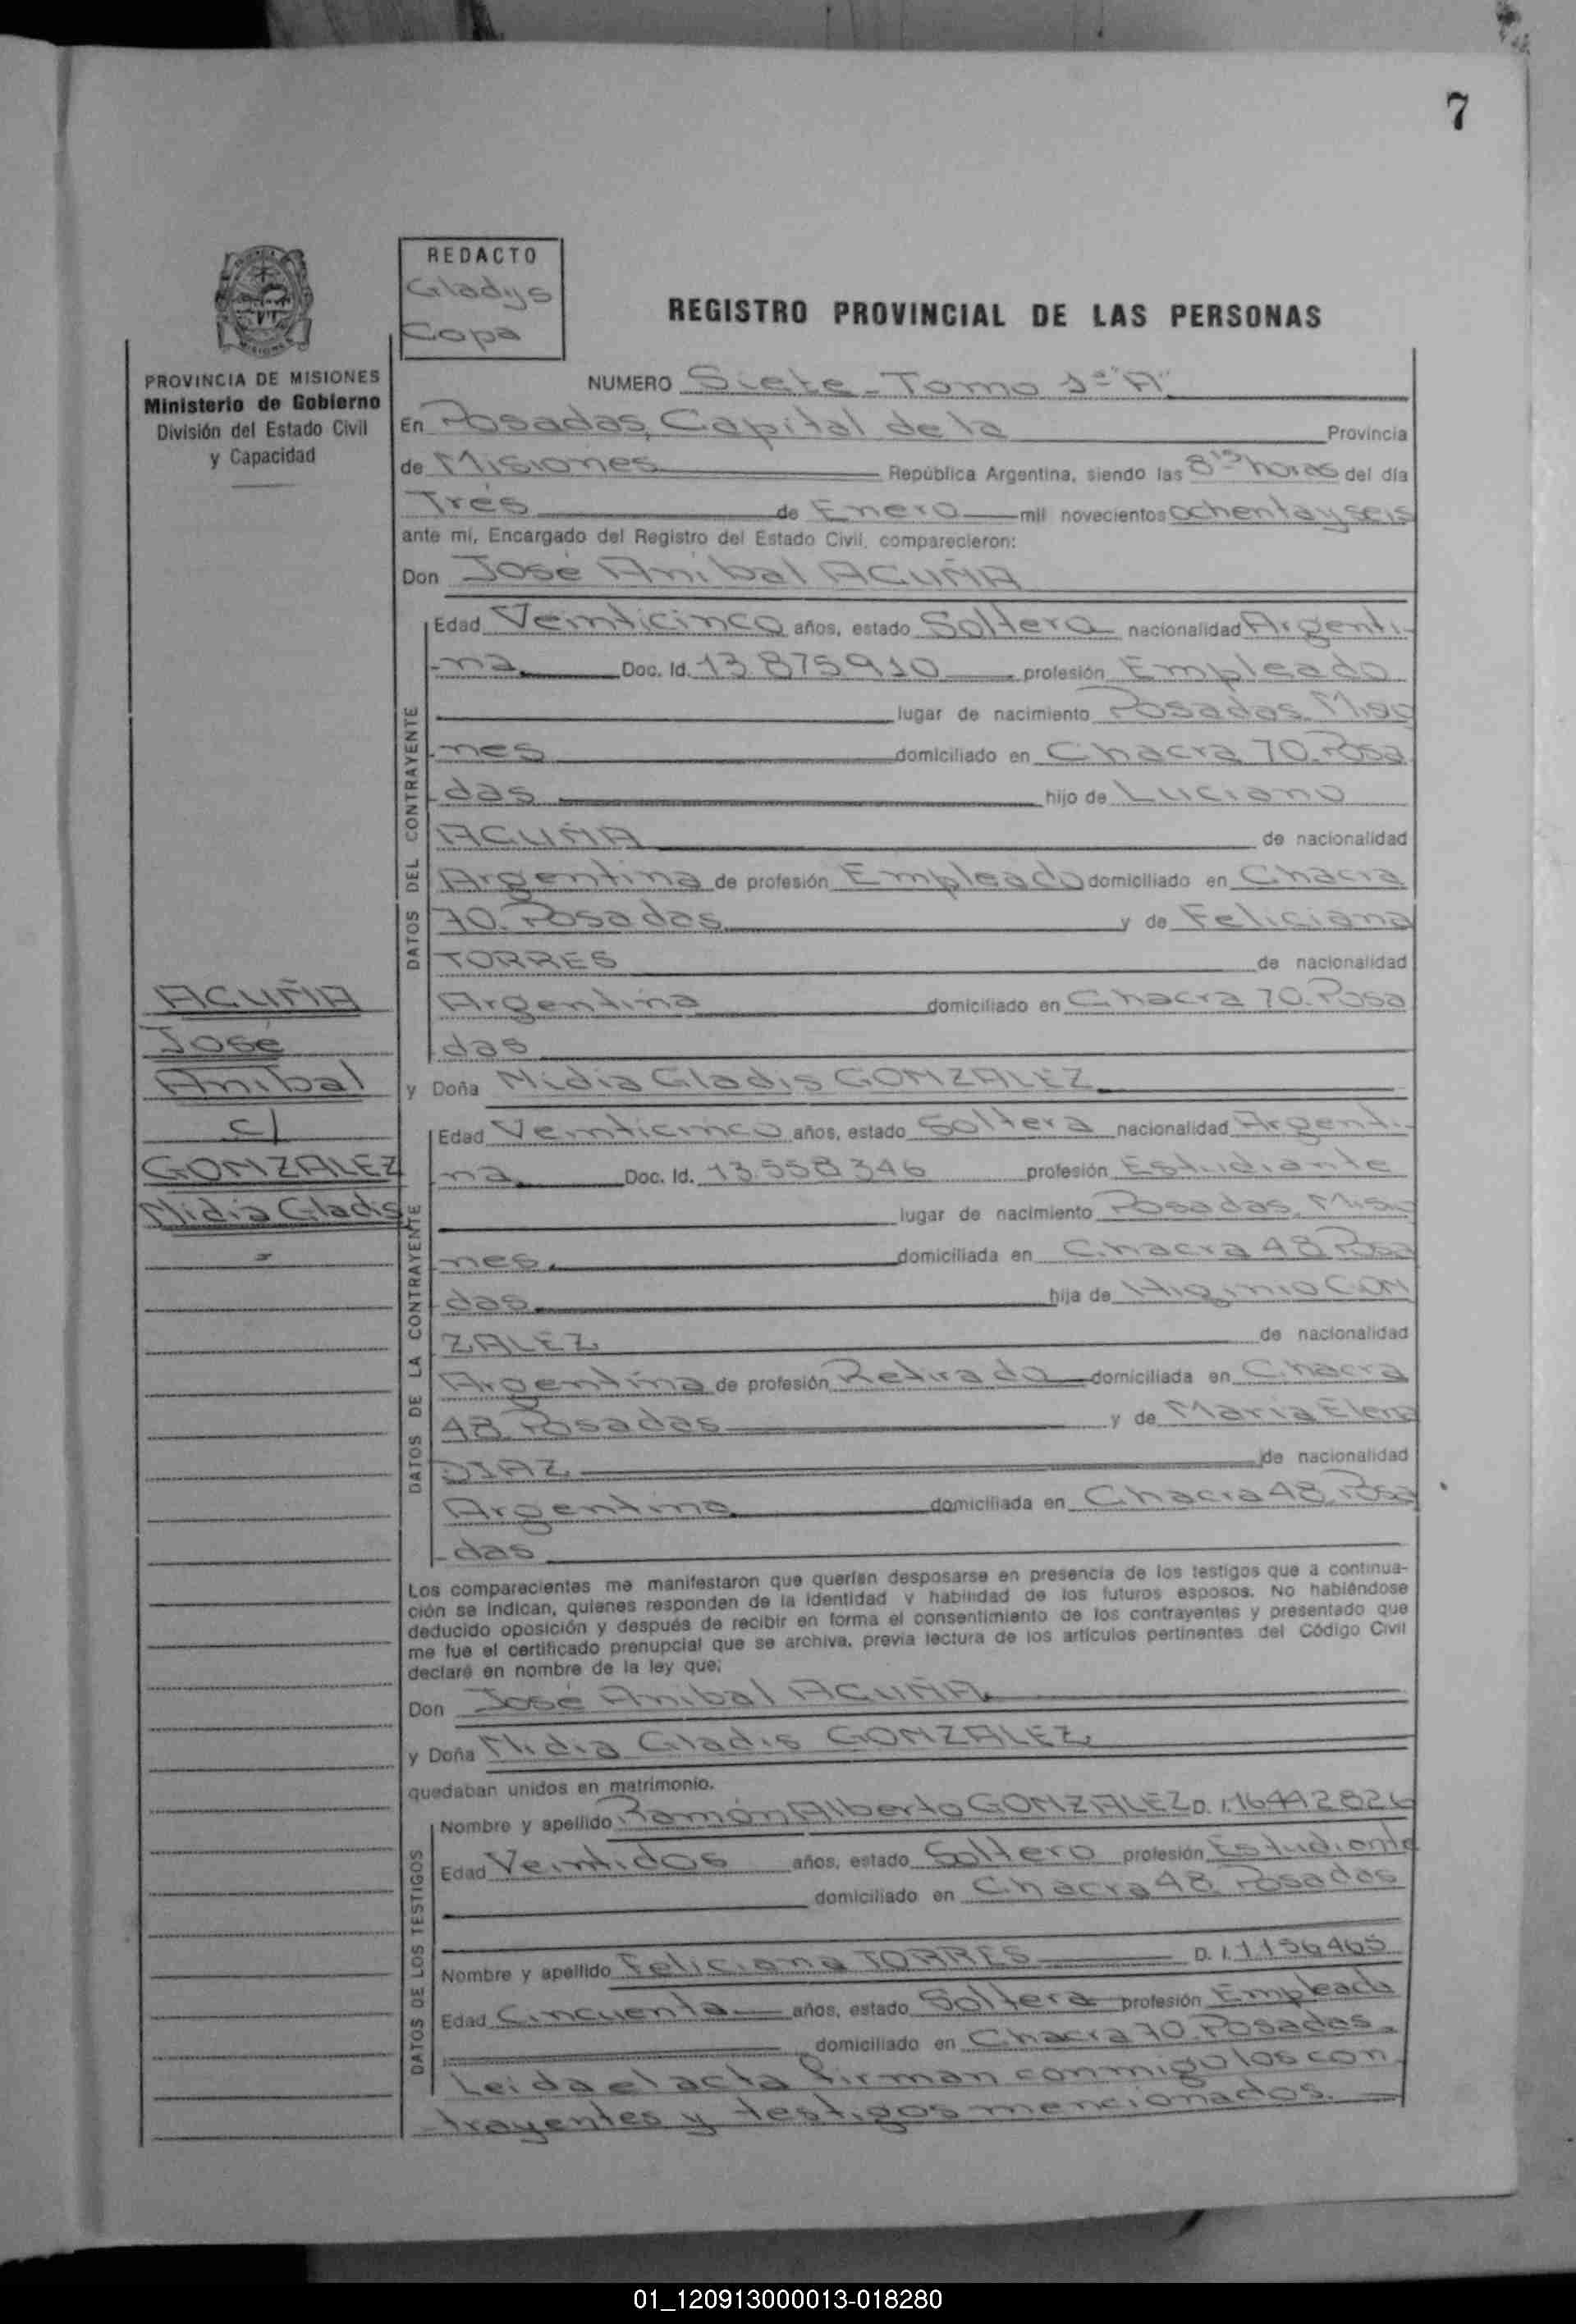 7
REDACTO
Gladys
Copa
REGISTRO PROVINCIAL DE LAS PERSONAS
PROVINCIA DE MISIONES
Ministerio de Gobierno
División del Estado Civil
y Capacidad
NUMERO Siete - Tomo 1º "A"
En Posadas, Capital de la Provincia
de Misiones República Argentina, siendo las 8 15 horas del día
Tres de Enero mil novecientos ochenta y seis
ante mí, Encargado del Registro del Estado Civil, comparecieron:
Don José Anibal ACUÑA
DATOS DEL CONTRAYENTE
Edad Veinticinco años, estado Soltero nacionalidad Argenti-
-na. Doc. Id. 13.875910 profesión Empleado
lugar de nacimiento Posadas. Misio
-nes domiciliado en Chacra 70. Posa
-das hijo de Luciano
ACUÑA de nacionalidad
Argentina de profesión Empleado domiciliado en Chacra
70. Posadas y de Feliciana
TORRES de nacionalidad
Argentina domiciliado en Chacra 70. Posa
-das
ACUÑA
José
Anibal
c/
GONZALEZ
Nidia Gladis
-
y Doña Nidia Gladis GONZALEZ
DATOS DE LA CONTRAYENTE
Edad Veinticinco años, estado Soltera nacionalidad Argenti-
-na. Doc. Id. 13.558346 profesión Estudiante
lugar de nacimiento Posadas. Misio
-nes. domiciliada en Chacra 48. Posa
-das. hija de Higinio GON
ZALEZ de nacionalidad
Argentina de profesión Retirado domiciliada en Chacra
48. Posadas y de Maria Elena
DIAZ de nacionalidad
Argentina domiciliada en Chacra 48. Posa
-das
Los comparecientes me manifestaron que querían desposarse en presencia de los testigos que a continua-
ción se indican, quienes responden de la identidad y habilidad de los futuros esposos. No habiéndose
deducido oposición y después de recibir en forma el consentimiento de los contrayentes y presentado que
me fue el certificado prenupcial que se archiva, previa lectura de los artículos pertinentes del Código Civil
declaré en nombre de la ley que;
Don José Anibal ACUÑA.
y Doña Nidia Gladis GONZALEZ
quedaban unidos en matrimonio.
DATOS DE LOS TESTIGOS
Nombre y apellido Ramón Alberto GONZALEZ D. I. 16442826
Edad Veintidos años, estado Soltero profesión Estudiante
domiciliado en Chacra 48. Posadas
Nombre y apellido Feliciana TORRES D. I. 1156465
Edad Cincuenta años, estado Soltera profesión Empleada
domiciliado en Chacra 70. Posadas.
Leida el acta firman conmigo los con-
trayentes y testigos mencionados.
01_120913000013-018280